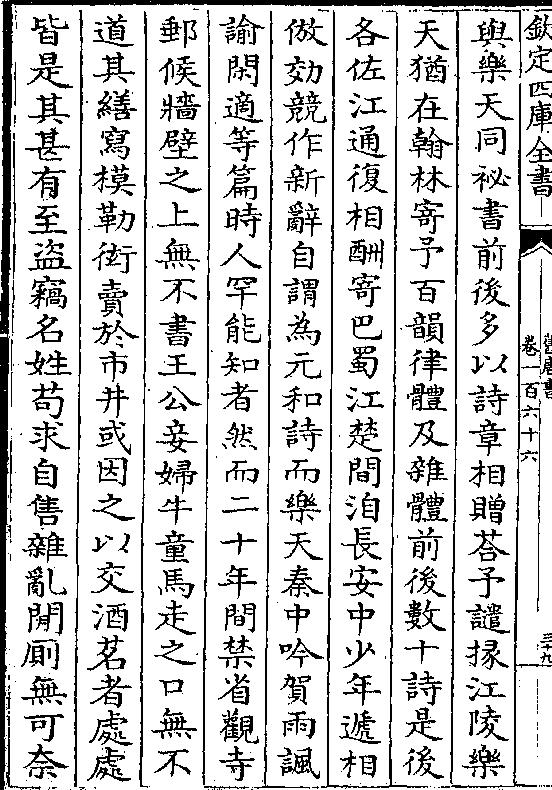 欽定四庫全書
舊唐書
卷一百六十六
三十九
與樂天同祕書前後多以詩章相贈荅予譴掾江陵樂
天猶在翰林寄予百韻律體及雜體前後數十詩是後
各佐江通復相酬寄巴蜀江楚間洎長安中少年遞相
倣効競作新辭自謂為元和詩而樂天秦中吟賀雨諷
諭閑適等篇時人罕能知者然而二十年間禁省觀寺
郵候牆壁之上無不書王公妾婦牛童馬走之口無不
道其繕寫模勒衒賣於市井或因之以交酒茗者處處
皆是其甚有至盜竊名姓苟求自售雜亂閒厠無可奈